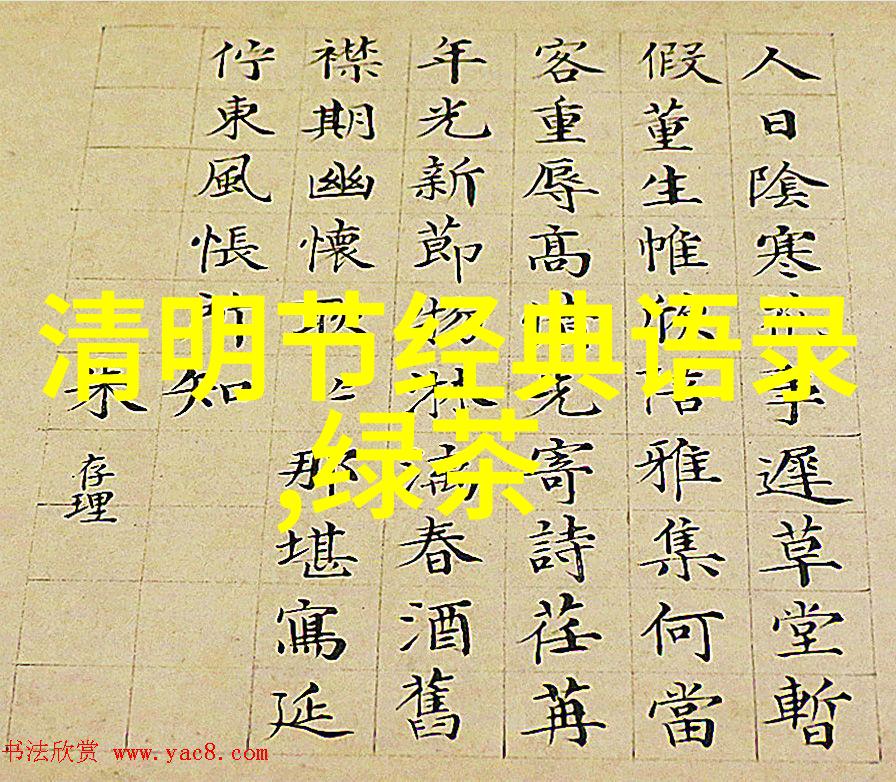 人日陰寒遲草堂暫
假董生帷欣陪雅集何當
客重辱高情先寄詩荏苒
年光新節物淋漓春酒舊
襟期幽懷那堪寫延
佇東風悵
知
存理
清明节经典语录
,绿茶
书法欣赏 www.yac8.com